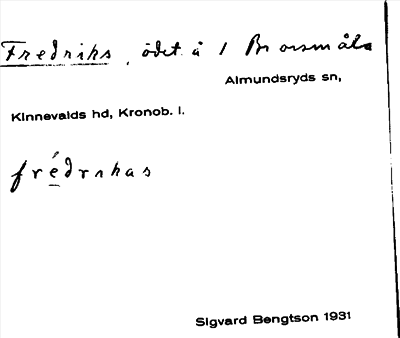 Fredriks, ödet. å 1 Brorsmåla
Almundsryds sn,
Kinnevalds hd, Kronob. l.
frédrikas
Sigvard Bengtson 1931